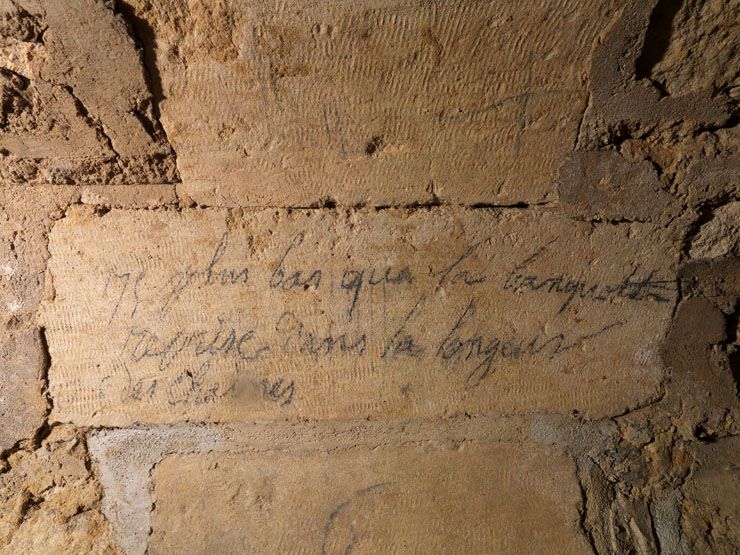 plus bas qua la banquette
reprise dans la longeur
des